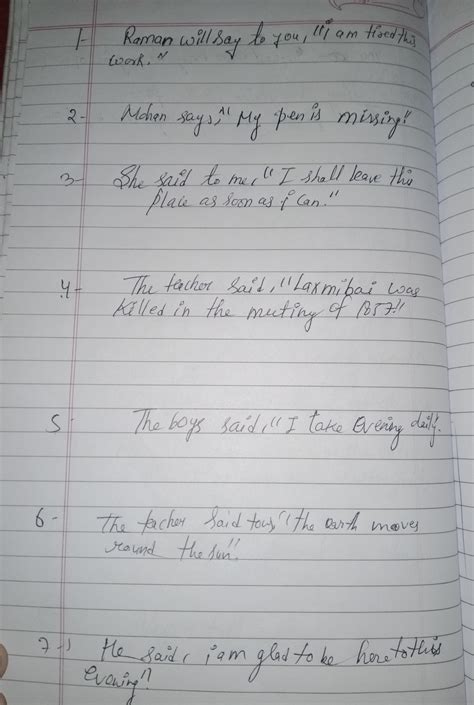 1- Raman will say to you, "i am tired this
work."
2- Mohan says, "My pen is missing"
3- She said to me, "I shall leave this
place as soon as i can."
4- The teacher said, "Laxmibai was
killed in the mutiny of 1857"
5- The boys said, "I take Evening daily.
6- The teacher said to us, "the earth moves
round the sun".
7- He said, i am glad to be here to this
evening"